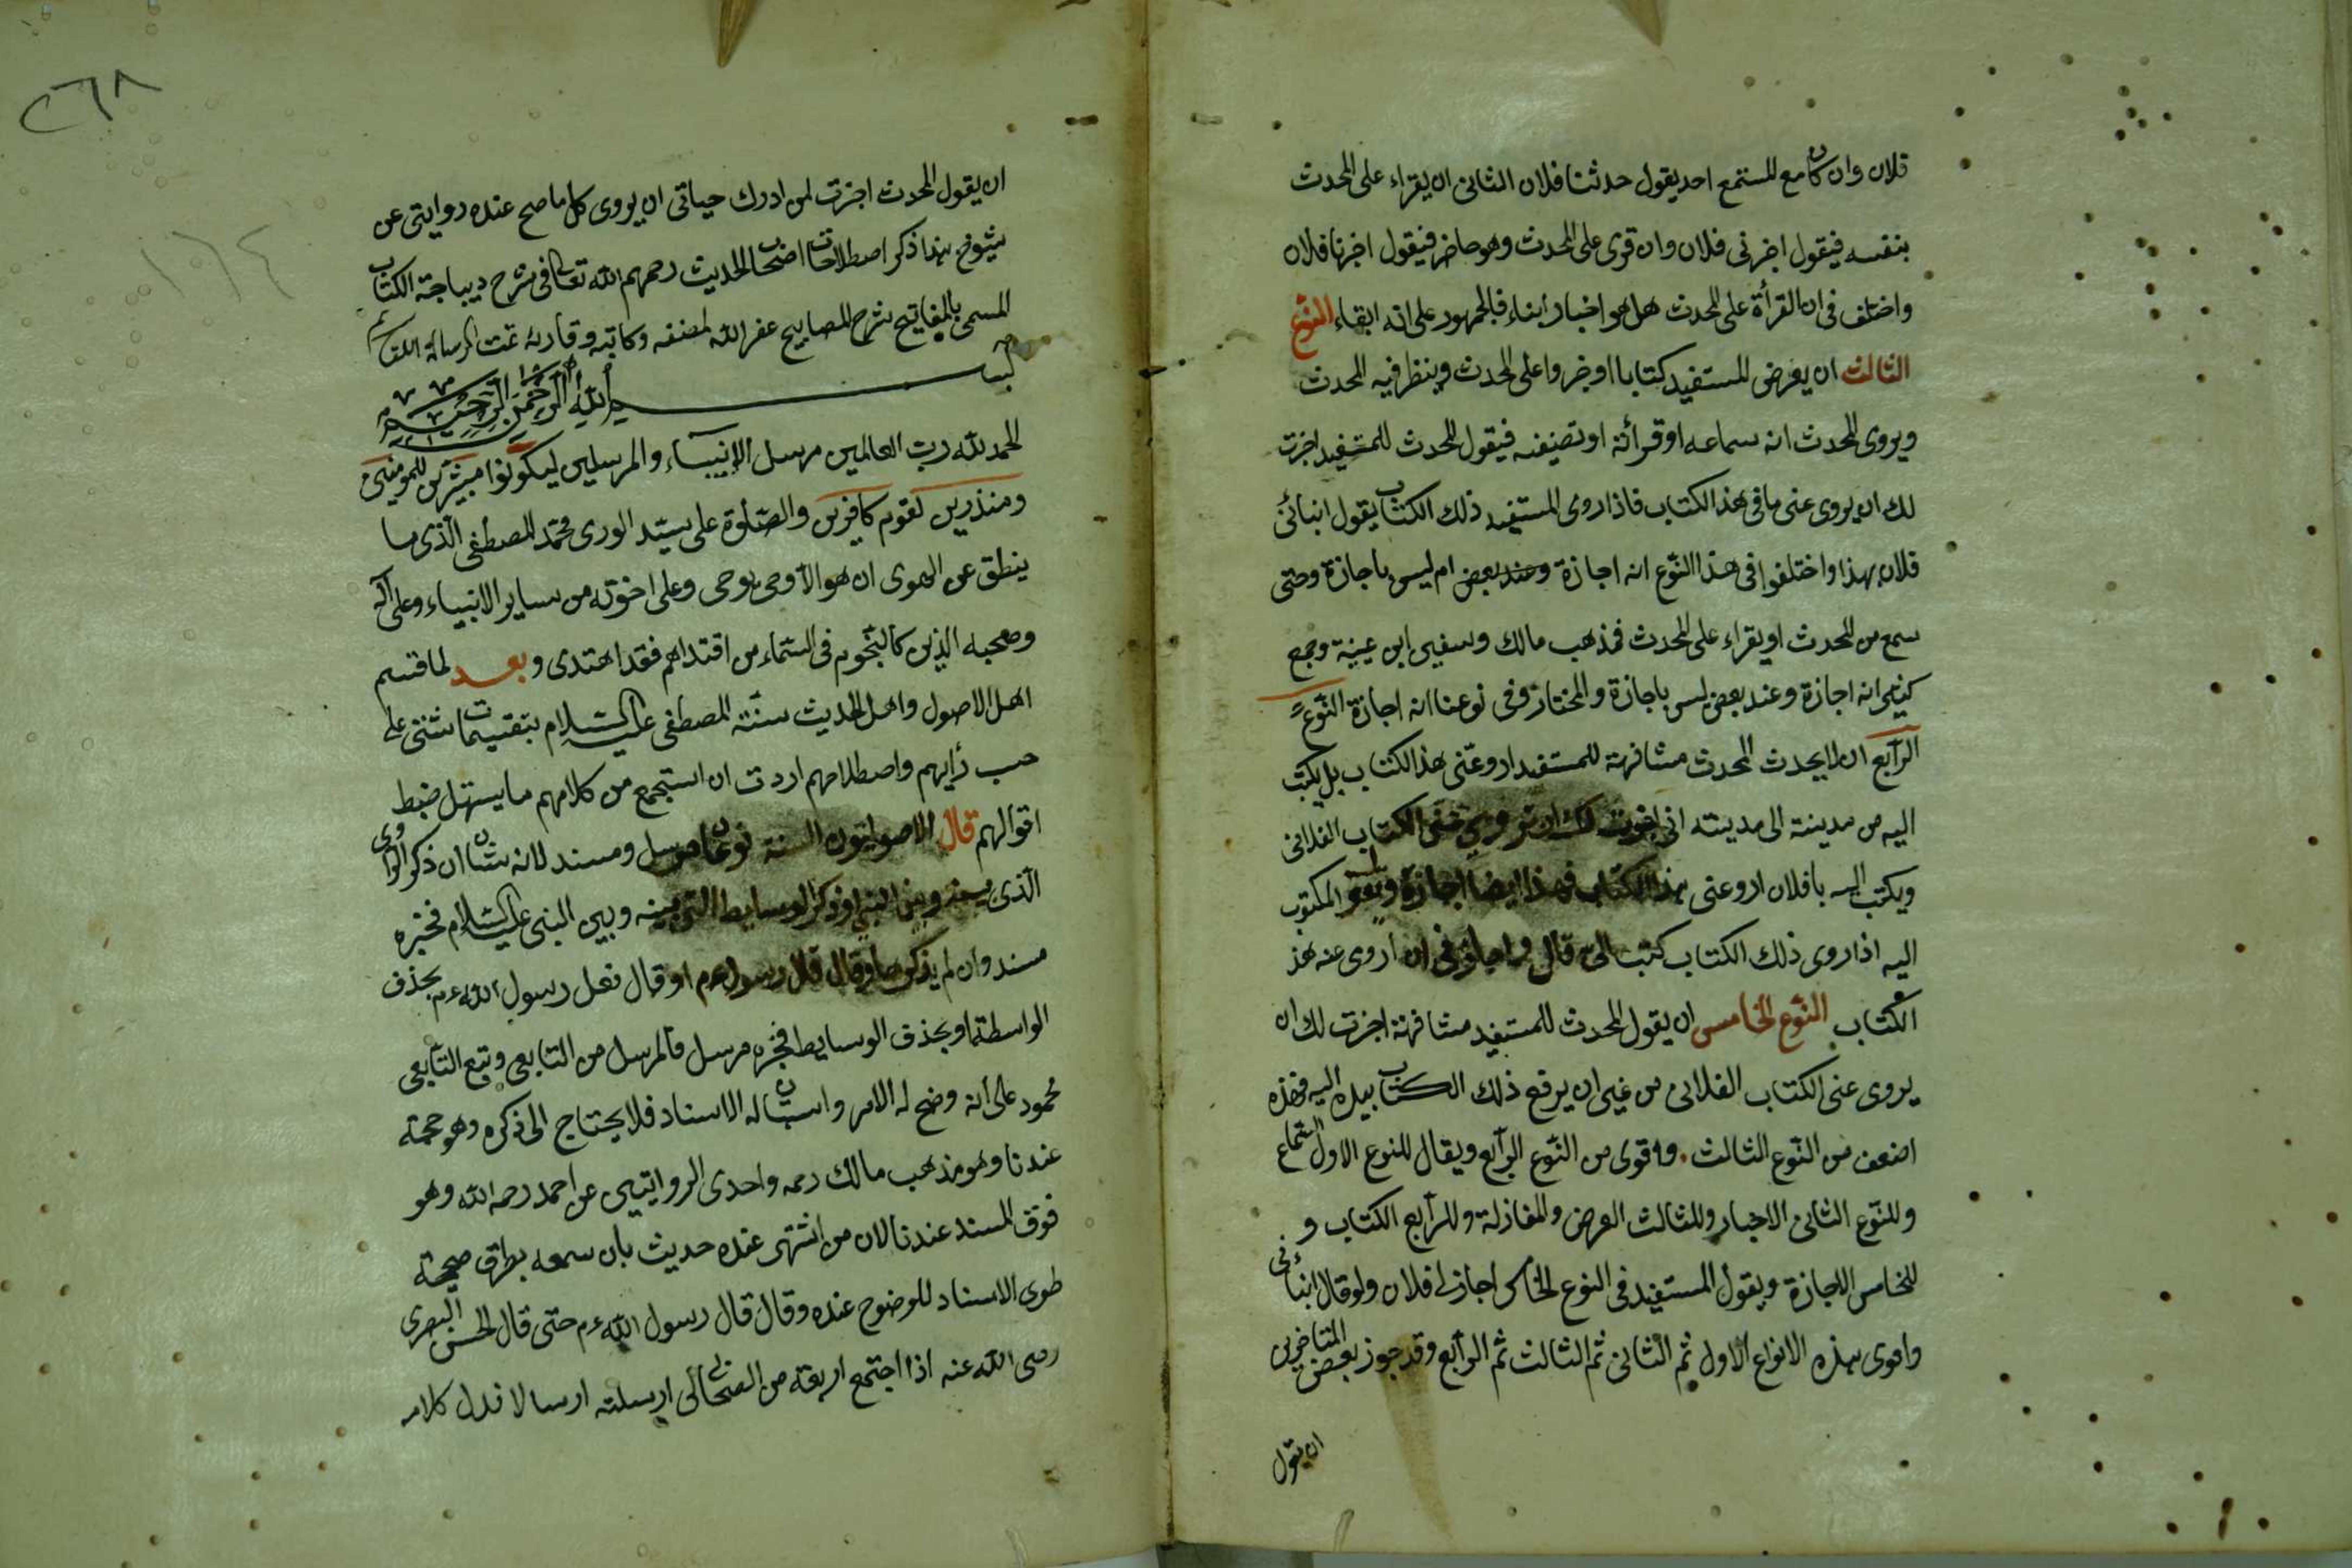 فلان وان كان مع المستمع احد يقول حدثنا فلان الثانى ان يقراء على المحدث
بنفسه فيقول اخبرنى فلان وان قرى على المحدث وهو حاضر فيقول اخبرنا فلان
واختلف فى ان القرأة على المحدث هل هو اخبار أنباء فالجمهور على انه ابقاء النوع
الثالث ان يعرض المستفيد كتابا او جزوا على المحدث وينظر فيه المحدث
ويروى المحدث انه سماعه او قرأته او تصنيفه فيقول المحدث للمستفيد اجزت
لك ان يروى عنى ما فى هذ الكتاب فاذا روى المستفيد ذلك الكتاب يقول انبائنى
فلان بهذا واختلفوا فى هذا النّوع انه اجازة وعند بعض ام ليس باجازة وحتى
سمع من المحدث او يقراء على المحدث فمذهب مالك وسفيى ابن عينية وجمع
كثير انه اجازة وعند بعض ليس باجازة والمختار وفى نوعنا انه اجازة النّوع
الرّابع ان لا يحدث المحدث مشافهة للمستفيد اروعنّى هذ الكتاب بل يكتب
اليه من مدينة الى مدينته انى اجزت لك ان تروى عنى الكتاب الفلانى
ويكتب اليه يا فلان اروعنى بهذ الكتاب فهذا ايضا اجازة ويقول المكتوب
اليه اذا روى ذلك الكتاب كتب الىّ قال واجازنى ان اروى عنه هذ
الكتاب النّوع الخامس ان يقول المحدث للمستفيد مشافهة اجزت لك ان
يروى عنى الكتاب الفلانى من غير ان يرفع ذلك الكتاب بيده اليه فهذه
اضعف من النّوع الثالث واقوى من النّوع الرّابع ويقال للنوع الاول السّماع
وللنّوع الثانى الاخبار وللثالث العرض والمفاذلة وللرّابع الكتاب و
للخامس الاجازة ويقول المستفيد فى النوع الخامس اجازلى فلان ولو قال انبأنى
واقوى بهذه الانواع الاول ثم الثانى ثم الثالث ثم الرابع وقد جوز بعض المتاخرين
ان يقول
٢٦٨
١٦٤
ان يقول المحدث اجزت لمن ادرك حياتى ان يروى كل ما صح عنده روايتى عن
شيوخ بهذا ذكر اصطلاحات اصحاب الحديث رحمهم الله تعالى فى شرح ديباجة الكتاب
المسمى بالمفاتيح شرح المصابيح غفر الله لمصنفه وكاتبه وقاريه تمت الرسالة
بسم الله الرّحمن الرّحيم
الحمد لله ربّ العالمين مرسل الانبياء والمرسلين ليكونوا مبشّرين للمومنين
ومنذرين لقوم كافرين والصّلوة على سيّد الورى محمّد المصطفى الّذى ما
ينطق عن الهوى ان هو الا وحى يوحى وعلى اخوته من ساير الانبياء وعلى آله
وصحبه الذين كالنّجوم فى السّماء من اقتداهم فقد اهتدى وبعد لما قسم
اهل الاصول واهل الحديث سنّة المصطفى عليه السّلام بتقسيمات شتّى على
حسب رأيهم واصطلاحهم اردت ان استجمع من كلامهم ما يسهل ضبط
اقوالهم قال الاصوليّون السنة نوعان مرسل ومسند لانه شان ان ذكر الراوى
الّذى بينه وبين النبى او ذكر الوسايط التى بينه وبين النبى عليه السّلام فخبره
مسند وان لم يذكرها وقال قال رسول ءم او قال فعل رسول الله ءم بحذف
الواسطة او بحذف الوسايط فخبره مرسل فالمرسل من التابعى وتبع التّابعى
محمود على انه وضح له الامر واستبان له الاسناد فلا يحتاج الى ذكره وهو حجة
عندنا وهو مذهب مالك رحمه واحدى الروايتين عن احمد رحمه الله وهو
فوق المسند عندنا لان من اشتهى عنده حديث بان سمعه بطرق صحيحة
طوى الاسناد للوضوح عنده وقال قال رسول الله ءم حتى قال الحسن البصرى
رضى الله عنه اذا اجتمع اربعة من الصحابة لى ارسلته ارسالا فدل كلامه